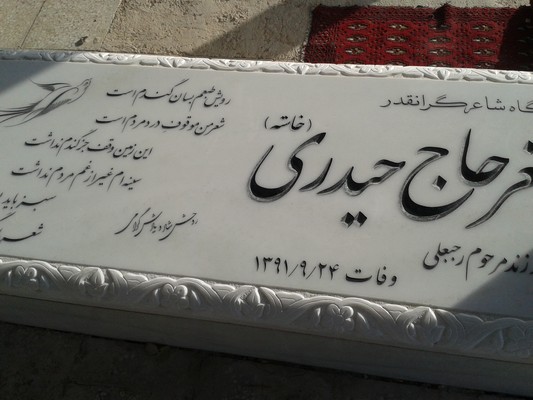 گاه شاعر گرانقدر
(خاته)
فر حاج حیدری
زند مرحوم رجبعلی
وفات ۱۳۹۱/۹/۲۴
رویش طبعم بسان گندم است
شعر من موقوف درد مردم است
این زمین وقف جز گندم نداشت
سینه‌ام غیر از غم مردم نداشت
سبز باید
شعر
روحش شاد یادش گرامی